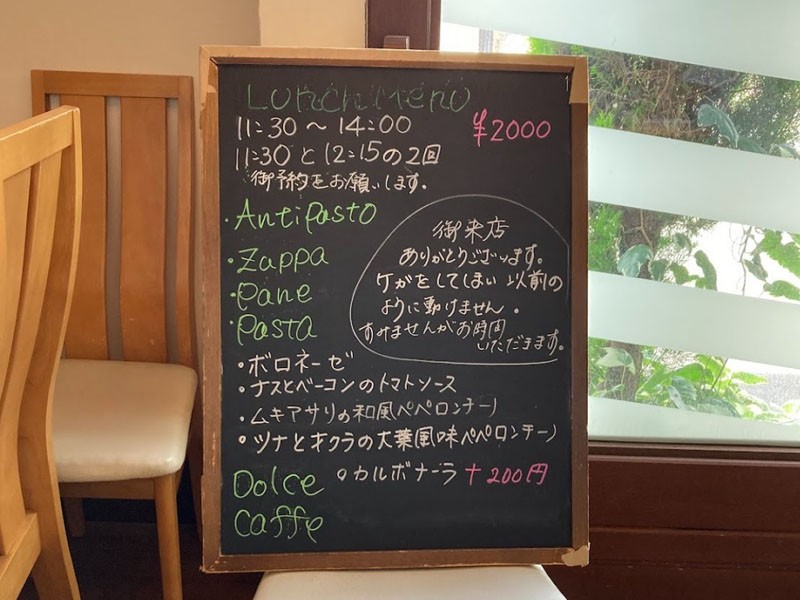 Lunch Menu
11:30 〜 14:00
¥2000
11:30 と 12:15の2回
御予約をお願いします.
・Antipasto
・Zuppa
・Pane
・Pasta
御来店
ありがとうございます。
ケガをしてしまい以前の
ように動けません.
すみませんがお時間
いただきます。
・ボロネーゼ
・ナスとベーコンのトマトソース
・ムキアサリの和風ペペロンチーノ
・ツナとオクラの大葉風味ペペロンチーノ
・カルボナーラ +200円
Dolce
Caffe